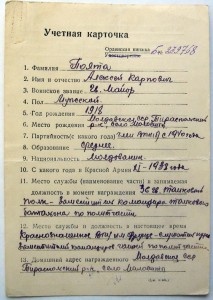 Учетная карточка
Орденская книжка Бн 279718
1. Фамилия Поята
2. Имя и отчество Алексей Карпович
3. Воинское звание Гв. Майор
4. Пол Мужской
5. Год рождения 1918
6. Место рождения Молдавская ССР Тираспольский
р-н, село
7. Партийность(с какого года) член ВКП(б) с 1940 года
8. Образование среднее.
9. Национальность Молдованин.
10. С какого года в Красной Армии
11. Место службы (наименование части) и занимаемая
должность в момент награждения танковый
полк - Заместитель командира танкового
батальона по политчасти
12. Место службы и должность в настоящее время
Заместитель командира по политчасти.
13. Домашний адрес награжденного Молдавская ССР
Тираспольский р-н, село